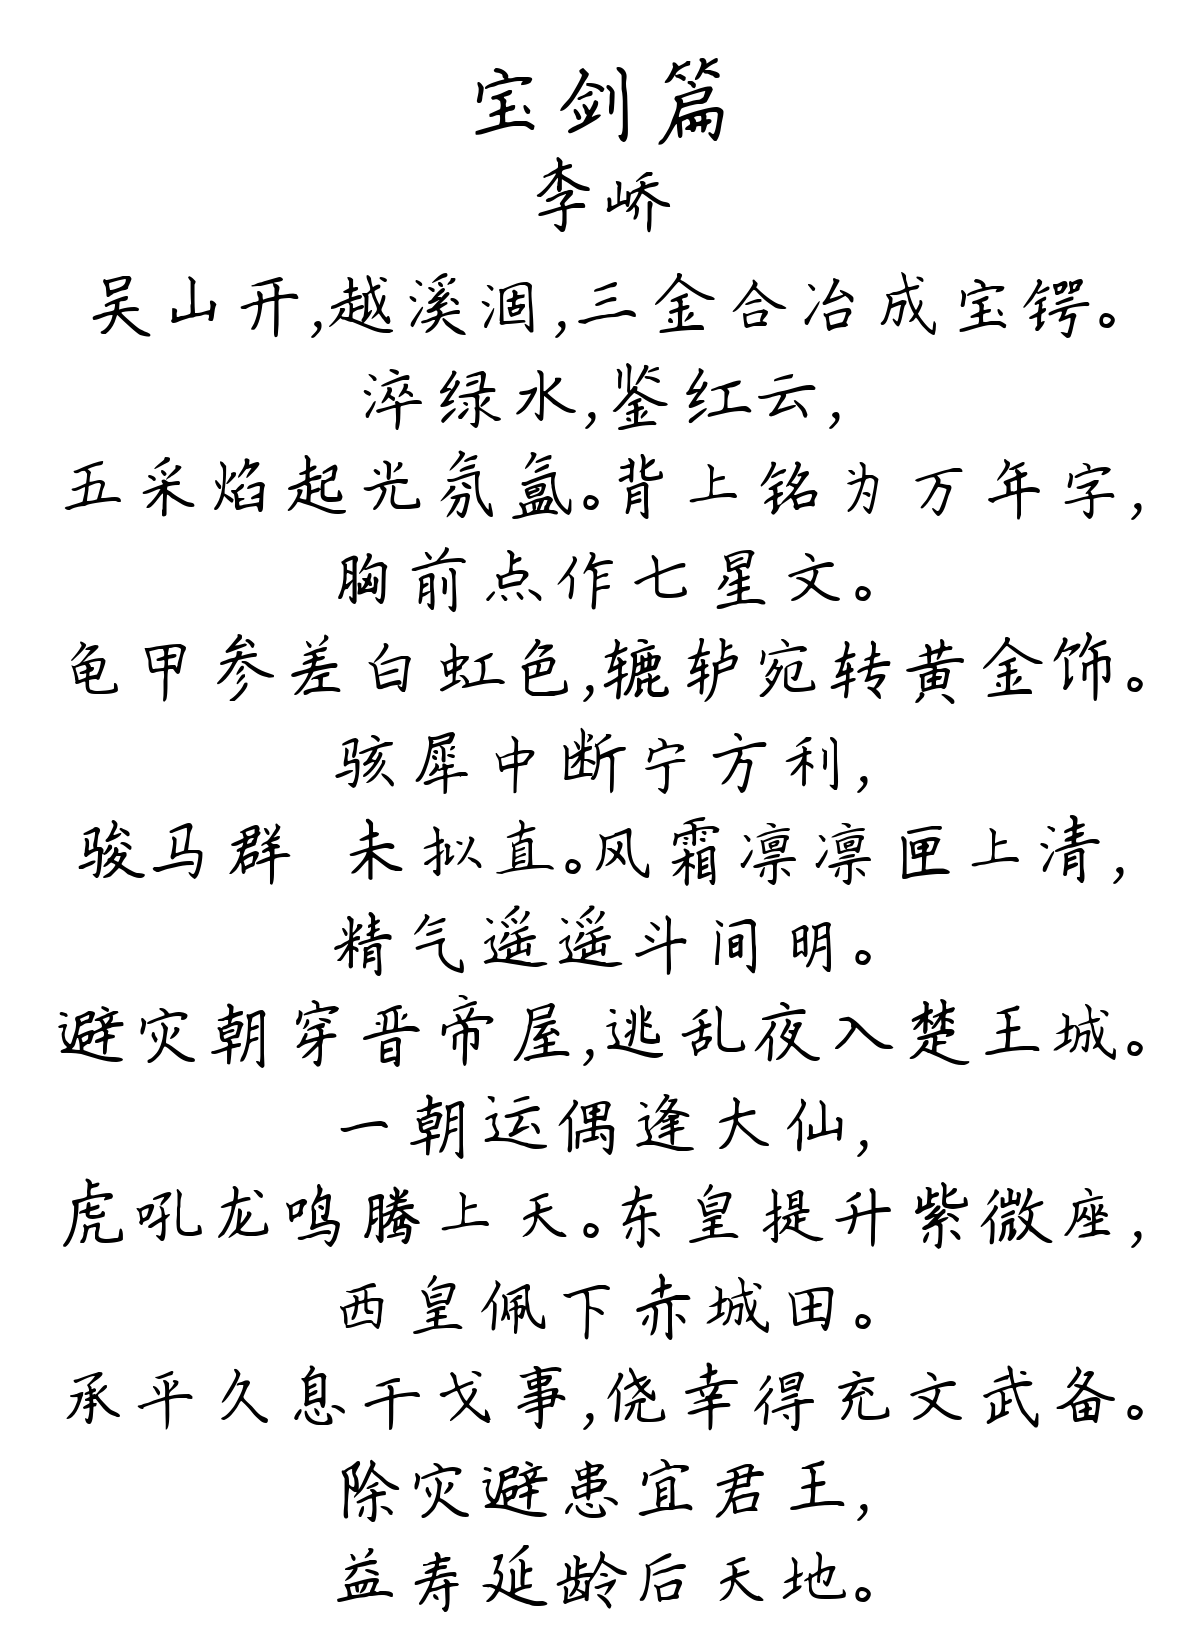 宝剑篇
李峤
吴山开,越溪涸,三金合冶成宝锷。
淬绿水,鉴红云,
五采焰起光氛氲。背上铭为万年字,
胸前点作七星文。
龟甲参差白虹色,辘轳宛转黄金饰。
骇犀中断宁方利,
骏马群 未拟直。风霜凛凛匣上清,
精气遥遥斗间明。
避灾朝穿晋帝屋,逃乱夜入楚王城。
一朝运偶逢大仙,
虎吼龙鸣腾上天。东皇提升紫微座,
西皇佩下赤城田。
承平久息干戈事,侥幸得充文武备。
除灾避患宜君王,
益寿延龄后天地。